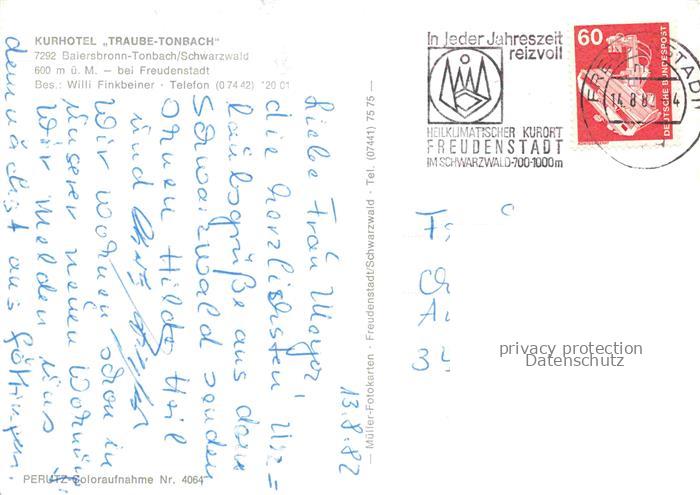 KURHOTEL „TRAUBE-TONBACH"
7292 Baiersbronn-Tonbach/Schwarzwald
600 m ü. M. — bei Freudenstadt
Bes.: Willi Finkbeiner · Telefon (07442) *20 01
In jeder Jahreszeit
reizvoll
HEILKLIMATISCHER KURORT
FREUDENSTADT
IM SCHWARZWALD-700-1000m
60
DEUTSCHE BUNDESPOST
14.8.82
13.8.82
Liebe Frau Mayer,
die herzlichsten Ur=
laubsgrüße aus dem
Schwarzwald senden
Ihnen Hilde Heil
und
Wir wohnen schon in
unserer neuen
Wir melden uns
demnächst aus Göttingen.
— Müller-Fotokarten · Freudenstadt/Schwarzwald · Tel. (07441) 75 75 —
privacy protection
Datenschutz
PERUTZ-Coloraufnahme Nr. 4064